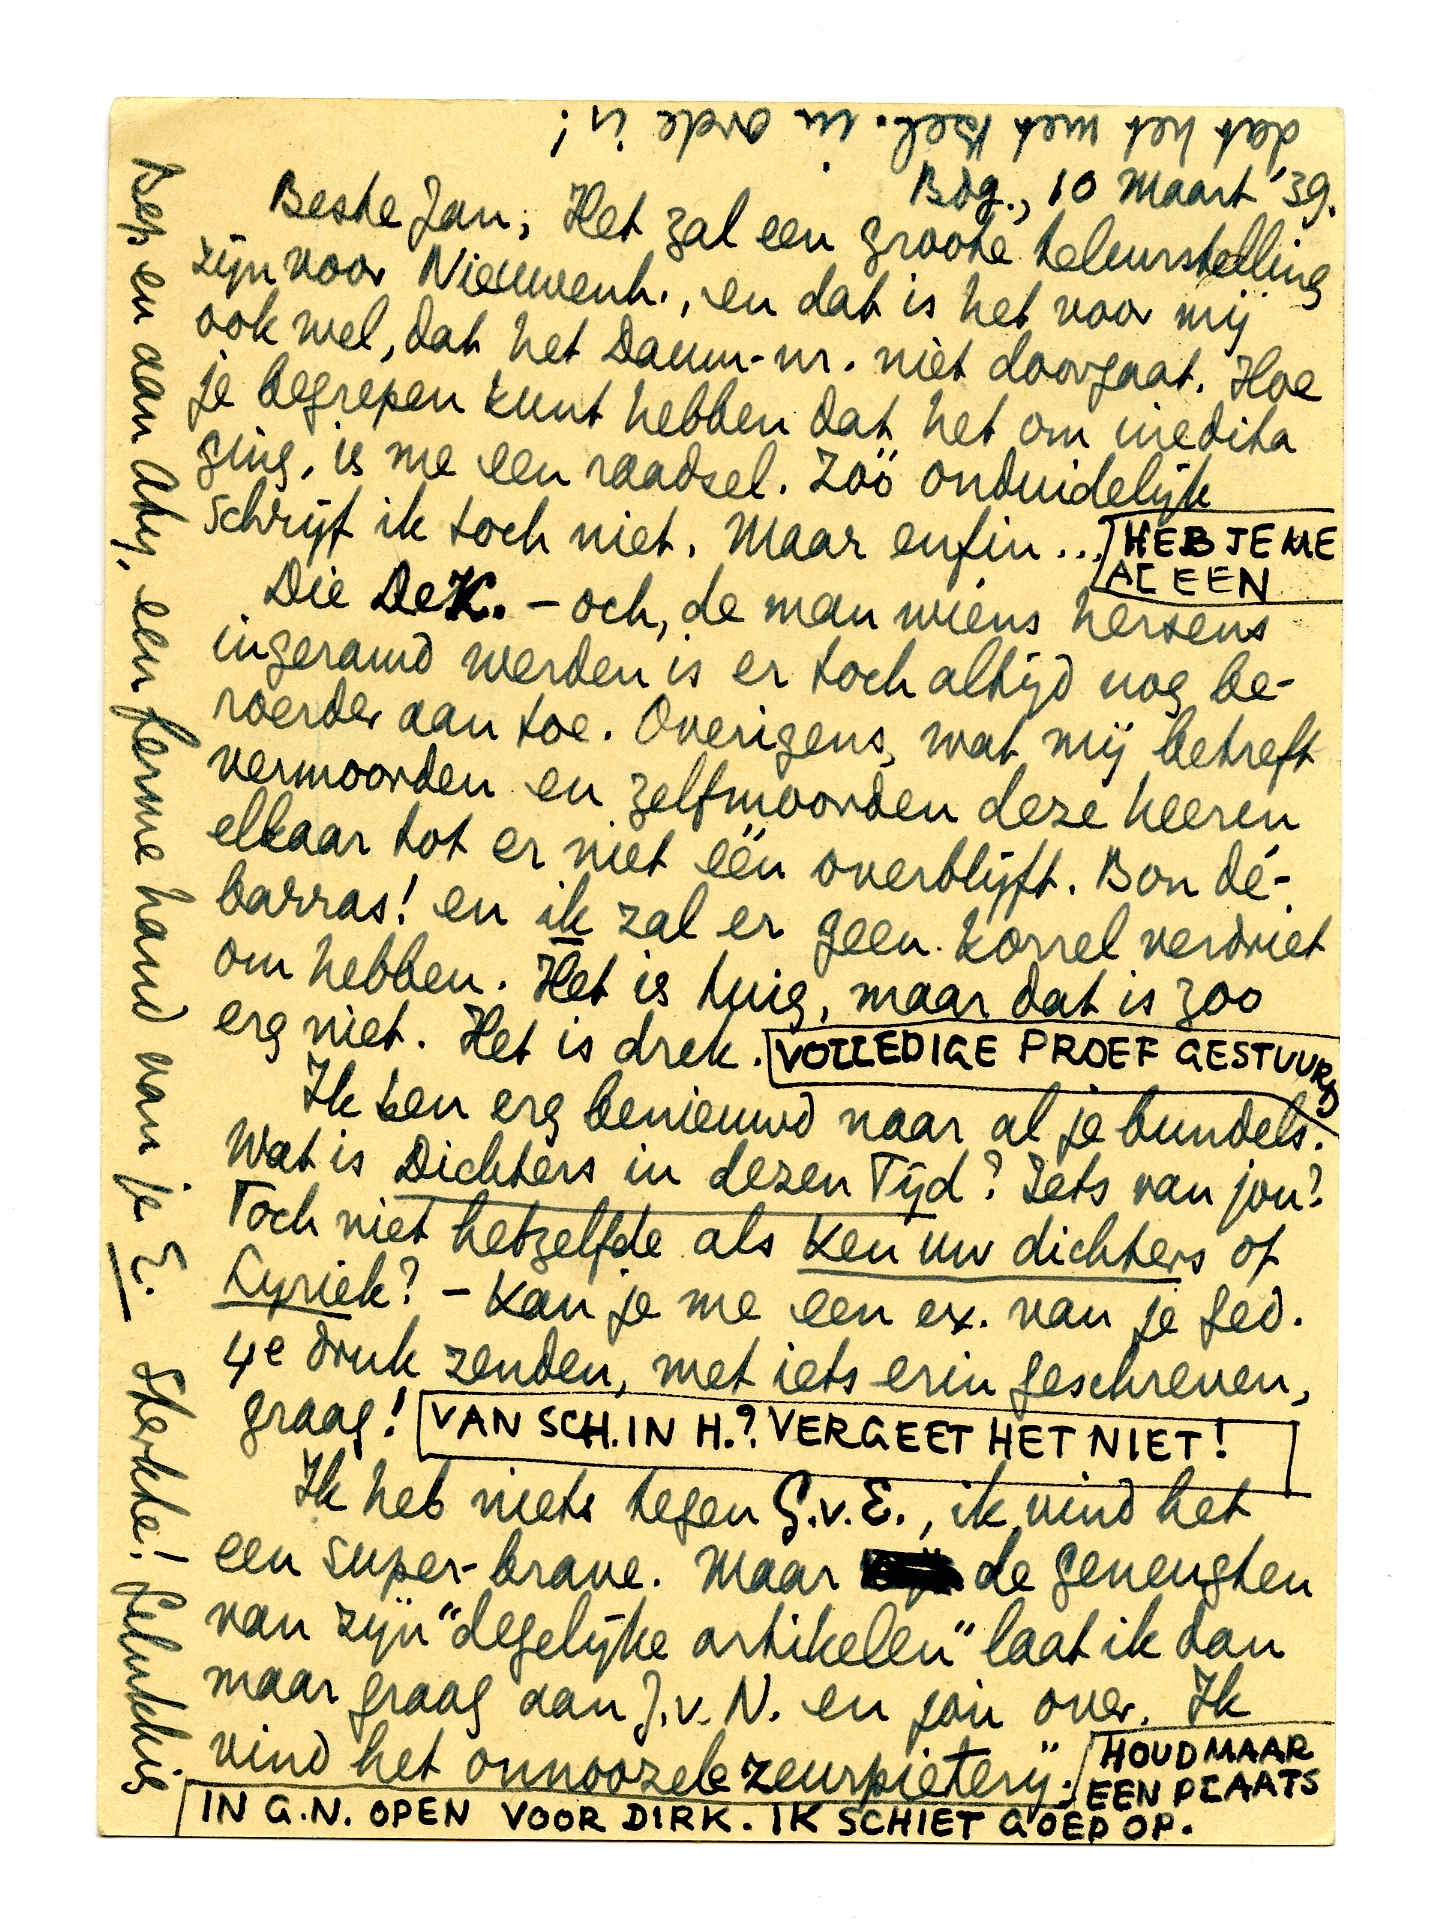 Bdg., 10 Maart '39.
Beste Jan, Het zal een groote teleurstelling
zijn voor Nieuwenh., en dat is het voor mij
ook wel, dat het Daum-nr. niet doorgaat. Hoe
je begrepen kunt hebben dat het om inedita
ging, is me een raadsel. Zóó onduidelijk
schrijf ik toch niet. Maar enfin...
HEB JE ME
AL EEN
Die DeK. – och, de man wiens hersens
ingeramd werden is er toch altijd nog be-
roerder aan toe. Overigens, wat mij betreft
vermoorden en zelfmoorden deze heeren
elkaar tot er niet één overblijft. Bon dé-
barras! en ik zal er geen korrel verdriet
om hebben. Het is tuig, maar dat is zoo
erg niet. Het is drek.
VOLLEDIGE PROEF GESTUURD
Ik ben erg benieuwd naar al je bundels.
Wat is Dichters in dezen Tijd? Iets van jou?
Toch niet hetzelfde als Ken uw dichters of
Lyriek? – Kan je me een ex. van je ged.
4e druk zenden, met iets erin geschreven,
graag!
VAN SCH. IN H.? VERGEET HET NIET!
Ik heb niets tegen G.v.E., ik vind het
een super-brave. Maar de geneugten
van zijn "degelijke artikelen" laat ik dan
maar graag aan J.v.N. en jou over. Ik
vind het onnoozele zeurpieterij.
HOUD MAAR
EEN PLAATS
IN G.N. OPEN VOOR DIRK. IK SCHIET GOED OP.
Bep en aan Ady, een ferme hand van je E. Sterkte! Gelukkig
dat het met Bel. in orde is!